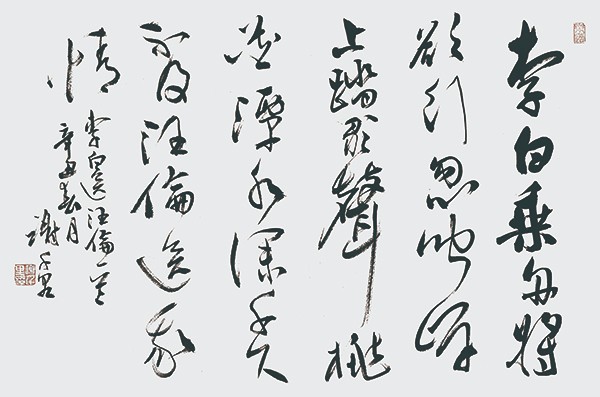 李白乘舟將
欲行忽聞岸
上踏歌聲桃
花潭水深千尺
不及汪倫送我
情
李白送汪倫一首
辛丑春月
謝